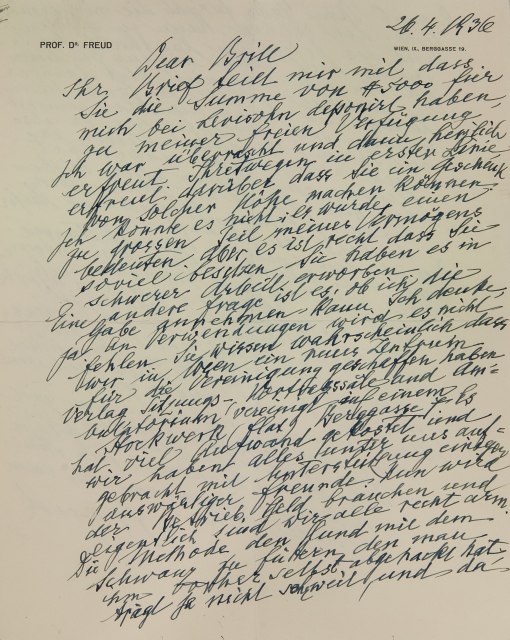 26. 4. 1936
PROF. DR. FREUD
WIEN, IX., BERGGASSE 19.
Dear Brill
Ihr Brief teilt mir mit dass
Sie die Summe von $5000 für
mich bei Levisohn deponirt haben,
zu meiner freien Verfügung.
Ich war überrascht und dann herzlich
erfreut. Ihretwegen in erster Linie
erfreut darüber dass Sie ein Geschenk
von solcher Höhe machen können.
Ich könnte es nicht; es würde einen
zu grossen Teil meines Vermögens
bedeuten. Aber es ist recht dass Sie
soviel besitzen. Sie haben es in
schwerer Arbeit erworben.
Eine andere Frage ist es ob ich die
Gabe annehmen kann. Ich denke,
ja. An Verwendungen wird es nicht
fehlen. Sie wissen wahrscheinlich dass
wir in Wien ein neues Zentrum
für die Vereinigung geschaffen haben
Verlag Sitzungs- Vortragssäle und Am-
bulatorium vereinigt auf einem
Stockwerk Berggasse 7. Es
hat viel Aufwand gekostet und
wir haben alles unter uns auf-
gebracht mit Unterstützung einiger
auswärtiger Freunde. Nun wird
der Betrieb Geld brauchen und
eigentlich sind wir alle recht arm.
Die Methode den Hund mit dem
Schwanz zu füttern den man
ihm vorher selbst abgehackt hat
trägt ja nicht sehr weit und da-